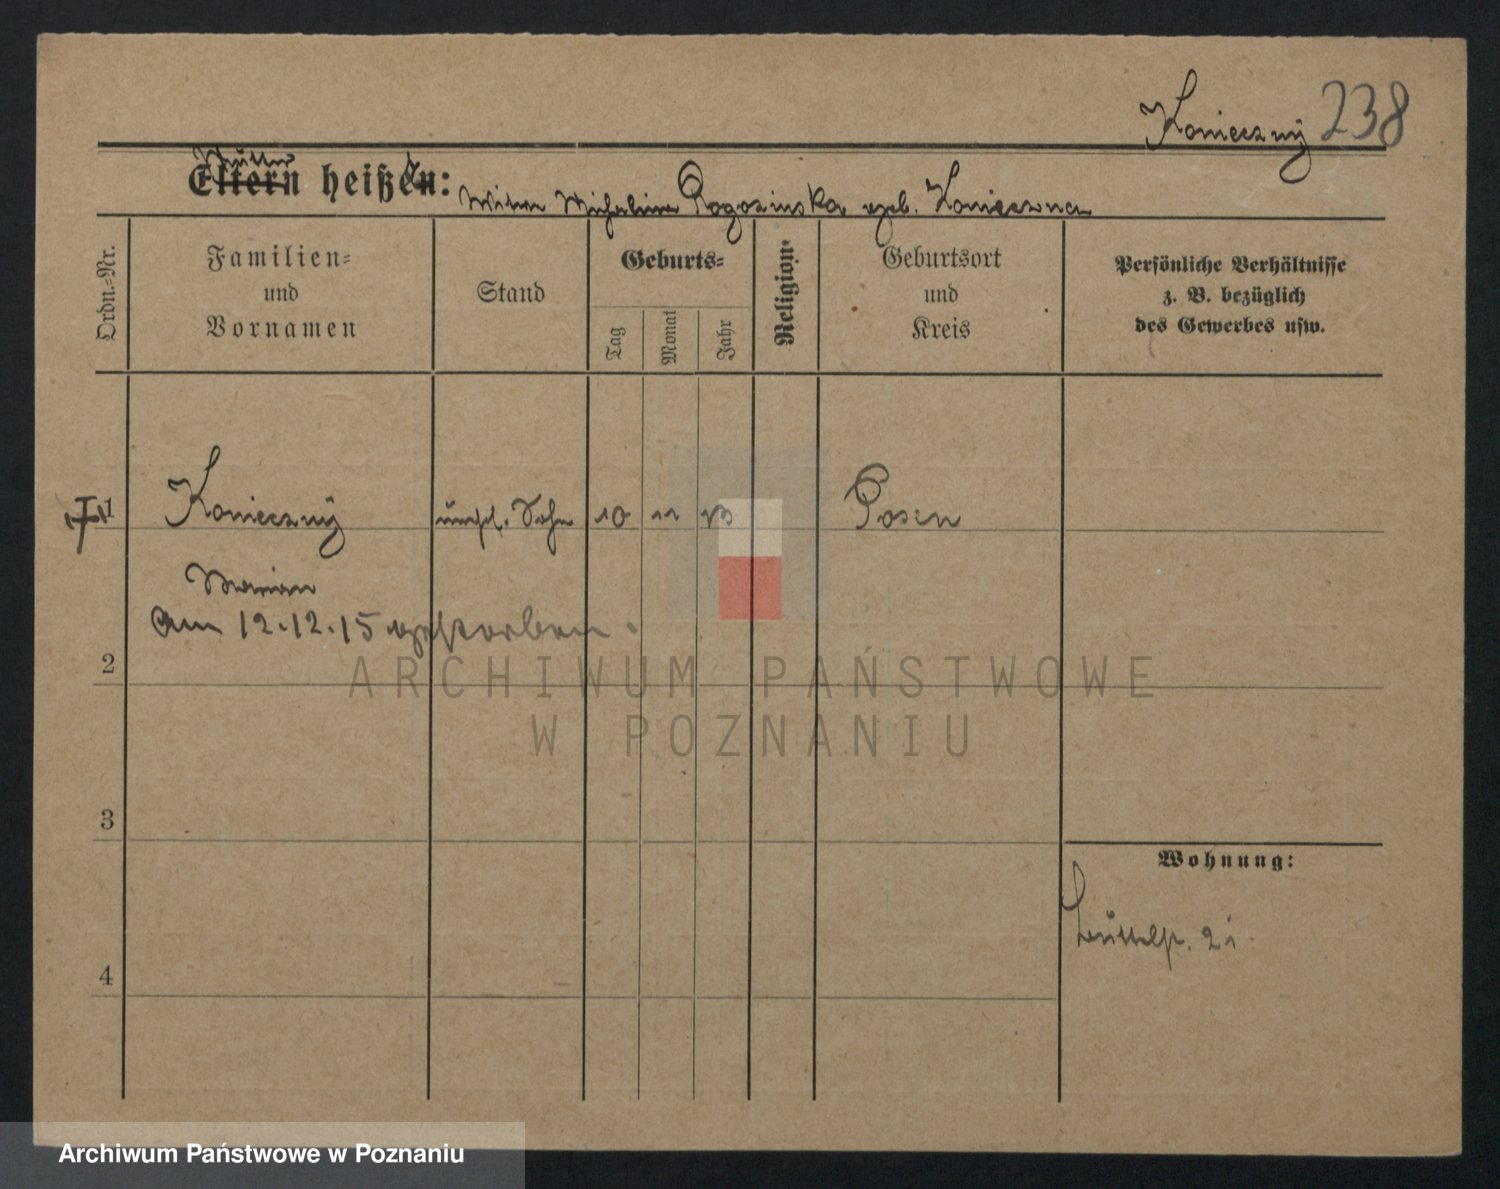 Konieczny 238
Mutter
Eltern heißen:
Witwe Michalina Rogozinska geb. Konieczna
Ordn.-Nr.
Familien-
und
Vornamen
Stand
Geburts-
Tag
Monat
Jahr
Religion
Geburtsort
und
Kreis
Persönliche Verhältnisse
z. B. bezüglich
des Gewerbes usw.
† 1 Konieczny unehel. Sohn 10 11 13 Posen
Marian
am 12.12.15 gestorben.
2
ARCHIWUM PAŃSTWOWE
W POZNANIU
3
Wohnung:
21
4
Archiwum Państwowe w Poznaniu